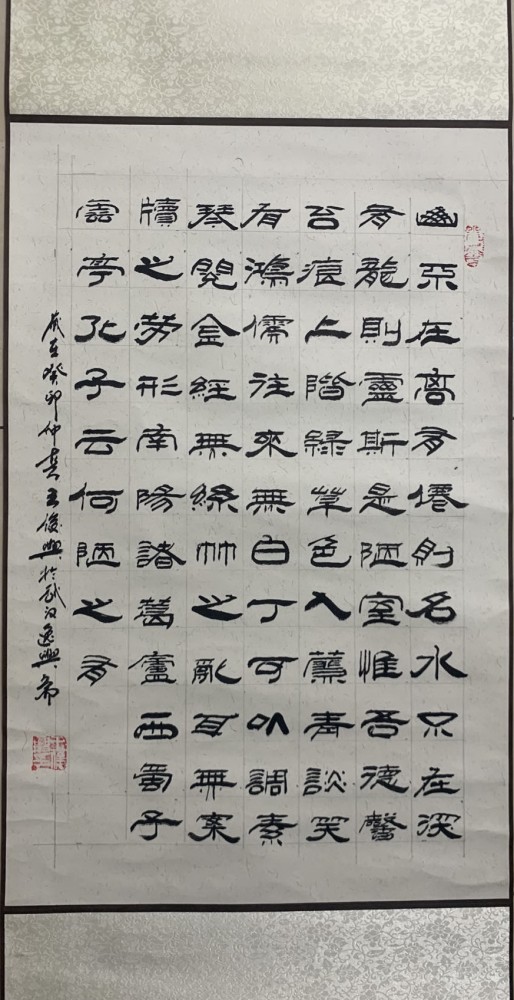 山不在高有僊則名水不在深
有龍則靈斯是陋室惟吾德馨
苔痕上階綠草色入簾青談笑
有鴻儒往來無白丁可以調素
琴閱金經無絲竹之亂耳無案
牘之勞形南陽諸葛廬西蜀子
雲亭孔子云何陋之有
歲在癸卯仲夏王俊興於武汉逸興斋